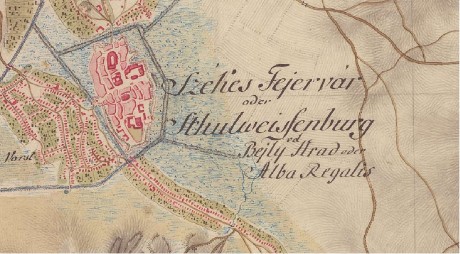 Széhes Fejervár
oder
Sthulweissenburg
vel
Bejly Hrad oder
Alba Regalis